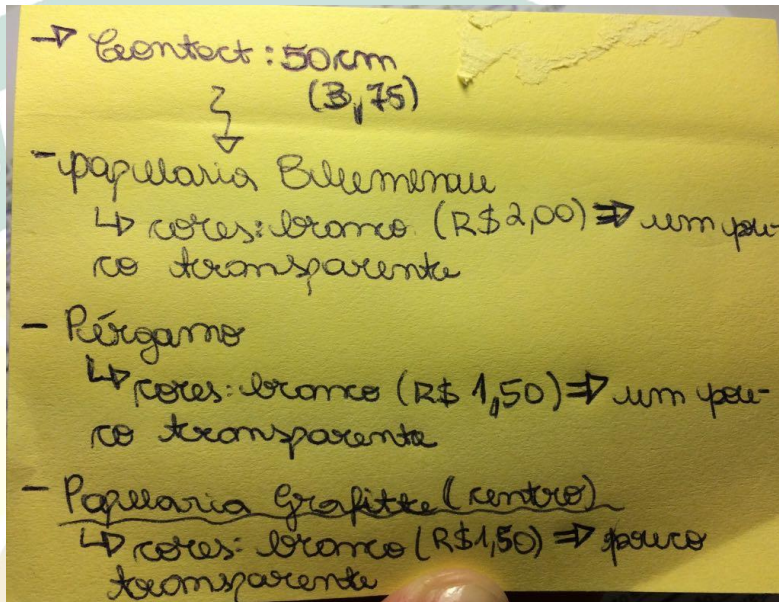 → Contect: 50cm
(3,75)
- papelaria Blumenau
↳ cores: branco (R$2,00) ⇒ um pou-
co transparente
- Pérgamo
↳ cores: branco (R$ 1,50) ⇒ um pou-
co transparente
- Papelaria Grafitte (centro)
↳ cores: branco (R$1,50) ⇒ pouco
transparente